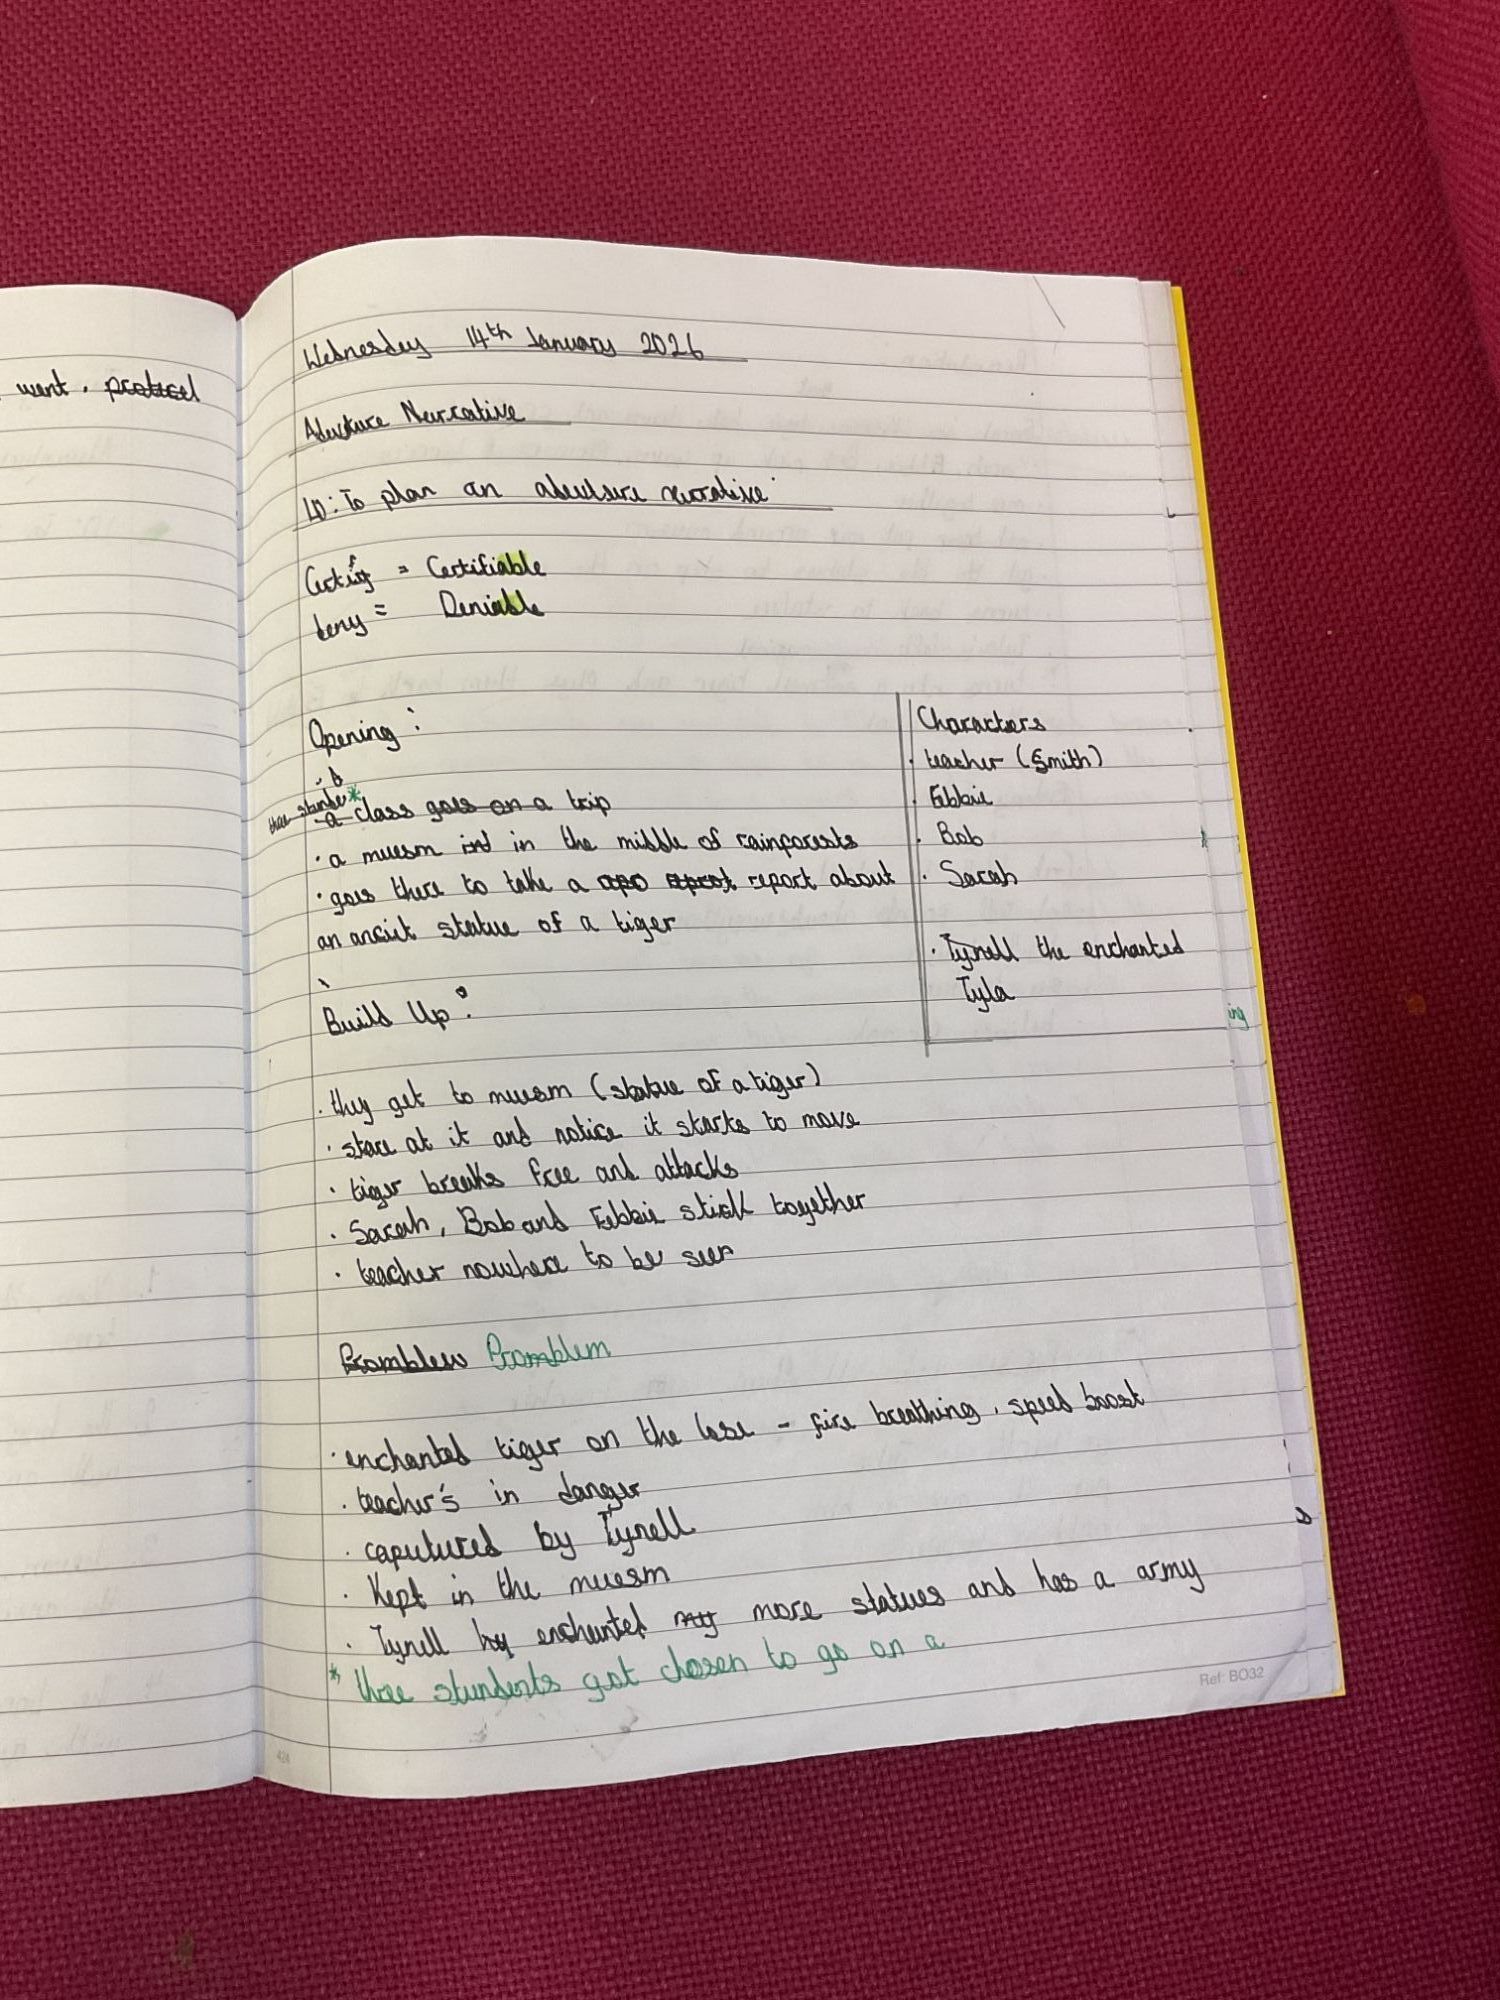 went. protocol
Wednesday 14th January 2026
Adventure Narrative
LO: To plan an adventure narrative
Certify = Certifiable
deny = Deniable
Opening:
three stundes*
a class goes on a trip
· a muesm in the middle of rainforests
· goes there to take a report about
an ancint statue of a tiger
Characters
· teacher (Smith)
· Ebbie
· Bob
· Sarah
· Tynell the enchanted
Tyla
Build Up:
· they get to muesm (statue of a tiger)
· stare at it and notice it starts to move
· tiger breaks free and attacks
· Sarah, Bob and Ebbie stick together
· teacher nowhere to be seen
ing
Promblem Promblem
· enchanted tiger on the lose - fire breathing, speed boost
· teacher's in danger
· caputured by Tynell
· Kept in the muesm
· Tynell enchanted more statues and has a army
* three stundents got chosen to go on a
Ref: BO32